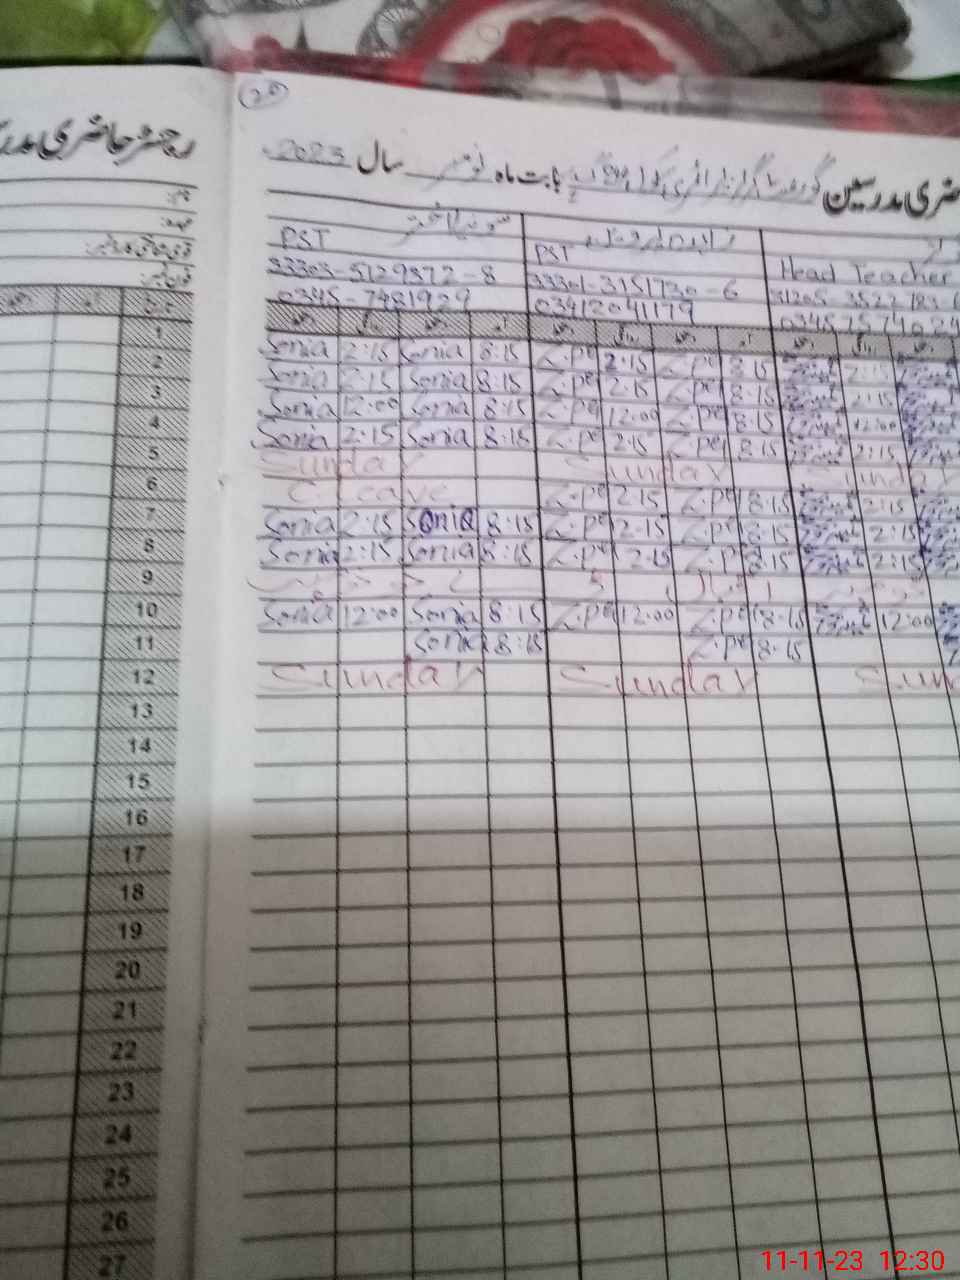 20
رجسٹر حاضری مدر
ضری مدرسین گورنمنٹ گرلز پرائمری سکول بابت ماہ نومبر سال 2023
نام:
عہدہ:
قومی شناختی کارڈ نمبر:
فون نمبر:
سونیا اختر زاہدہ پروین
PST PST Head Teacher
33303-5129372-8 33301-3151730-6 31205-3522783-6
0345-7481929 03412041179 03457574024
1 Sonia 2:15 Sonia 8:15 Z.pe 2:15 Z.pe 8:15 2:15
2 Sonia 2:15 Sonia 8:15 Z.pe 2:15 Z.pe 8:15 2:15
3 Sonia 12:00 Sonia 8:15 Z.pe 12:00 Z.pe 8:15 12:00
4 Sonia 2:15 Sonia 8:15 Z.pe 2:15 Z.pe 8:15 2:15
5 Sunday Sunday Sunday
6 C. Leave Z.pe 2:15 Z.pe 8:15 2:15
7 Sonia 2:15 Sonia 8:15 Z.pe 2:15 Z.pe 8:15 2:15
8 Sonia 2:15 Sonia 8:15 Z.pe 2:15 Z.pe 8:15 2:15
9 اقبال ڈے
10 Sonia 12:00 Sonia 8:15 Z.pe 12:00 Z.pe 8:15 12:00
11 Sonia 8:15 Z.pe 8:15
12 Sunday Sunday Sun
13
14
15
16
17
18
19
20
21
22
23
24
25
26
27
11-11-23 12:30